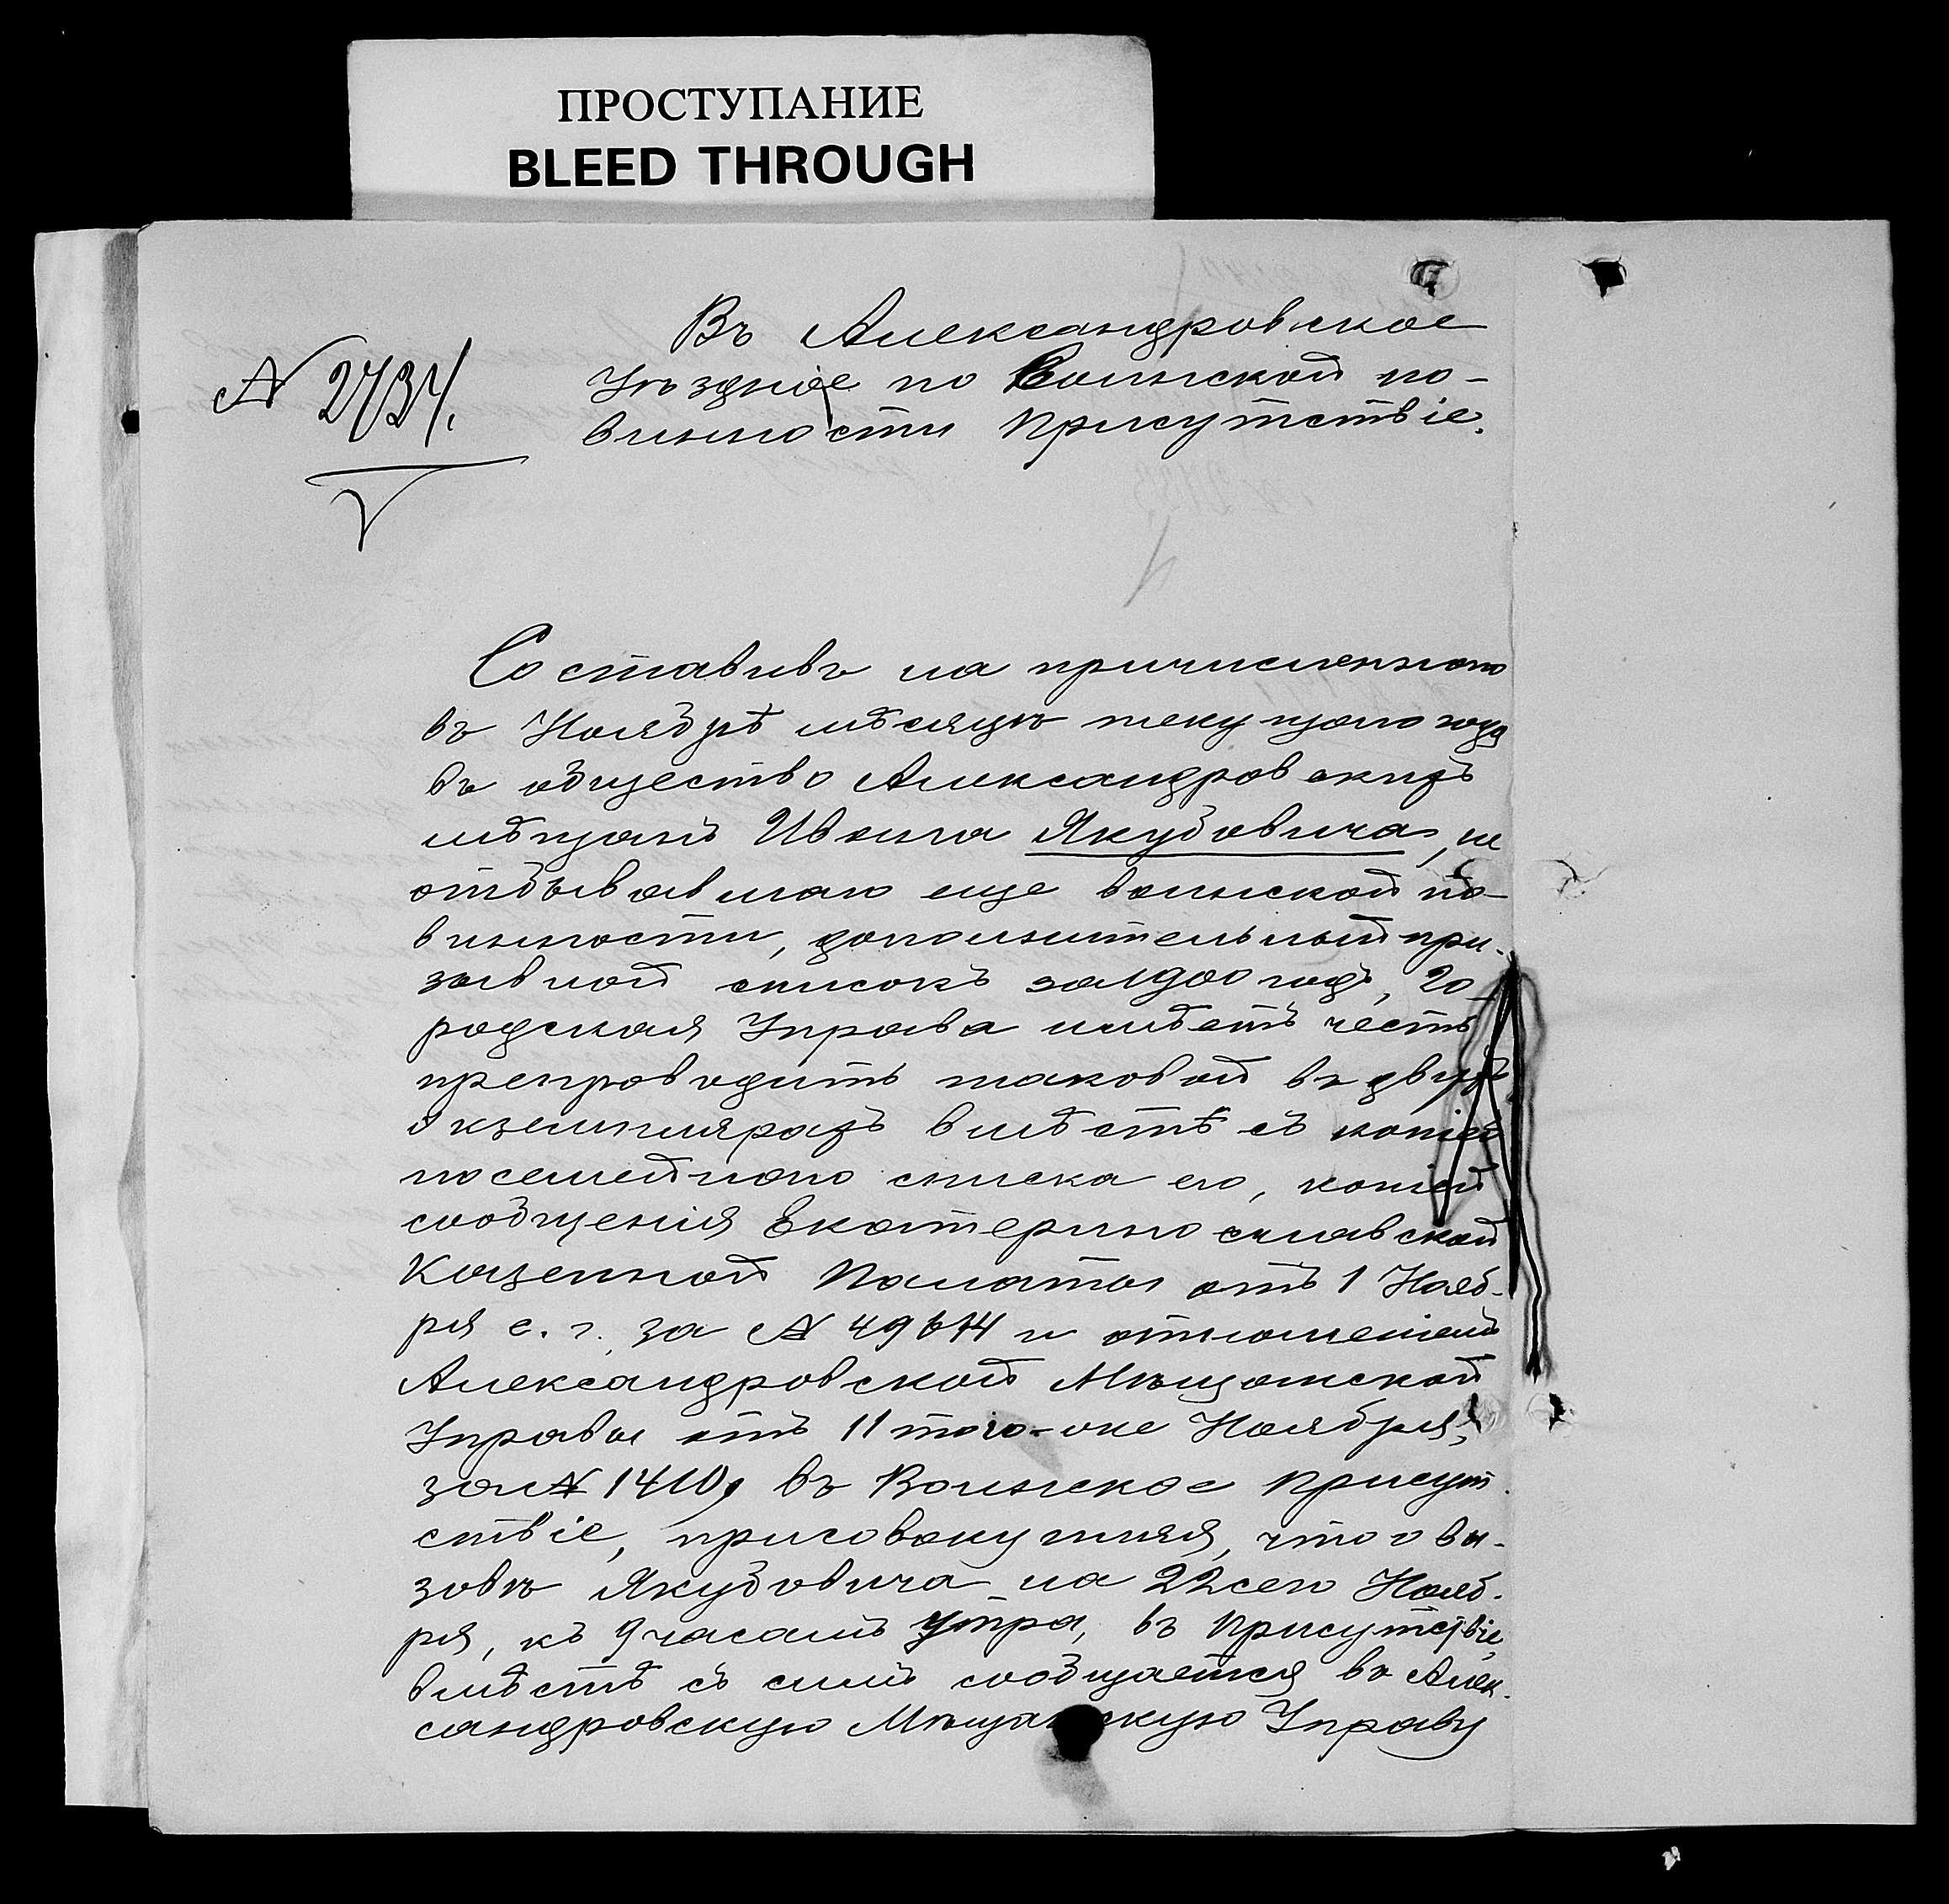 ПРОСТУПАНИЕ
BLEED THROUGH
Въ Александровское
№ 2734.
Уѣздное по Воинской по-
винности Присутствіе.
Составивъ на причисленнаго
въ Ноябрѣ мѣсяцѣ текущаго года
въ общество Александровскихъ
мѣщанъ Ивана Якубовича, не
отбывавшаго еще воинской по-
винности, дополнительный при-
зывной списокъ за 1900 годъ, Го-
родская Управа имѣетъ честь
препроводить таковой въ двухъ
экземплярахъ вмѣстѣ съ копіей
посемейнаго списка его, копіей
сообщенія Екатеринославской
Казенной Палаты отъ 1 Нояб-
ря с. г. за № и отношеніемъ
Александровской Мѣщанской
Управы отъ 11 того-же Ноября,
за № 1410, въ Воинское Присут
ствіе, присовокупляя, что о вы-
зовѣ Якубовича на 22 сего Нояб-
ря, къ 9 часамъ утра, въ Присутствіе,
вмѣстѣ съ симъ сообщается въ Алек-
сандровскую Мѣщанскую Управу